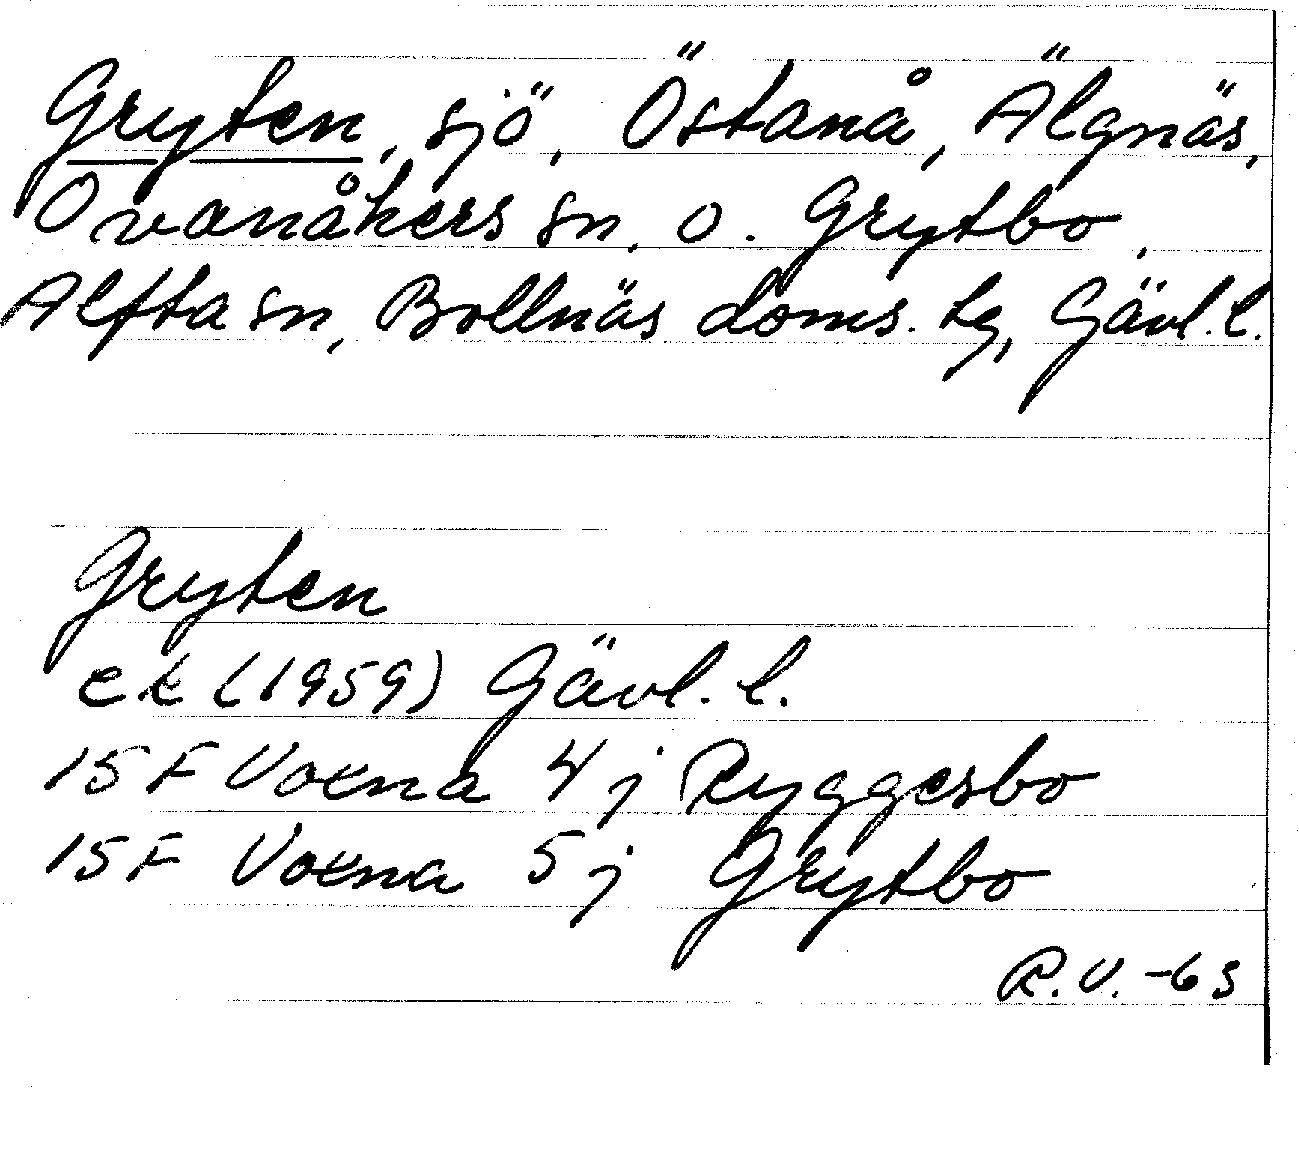 Gryten, sjö, Östanå, Älgnäs,
Ovanåkers sn, o. Grytbo,
Alfta sn, Bollnäs doms. tg, Gävl. l.
Gryten
ek (1959) Gävl. l.
15 F Voxna 4 j Ryggesbo
15 F Voxna 5 j Grytbo
R.V. -63